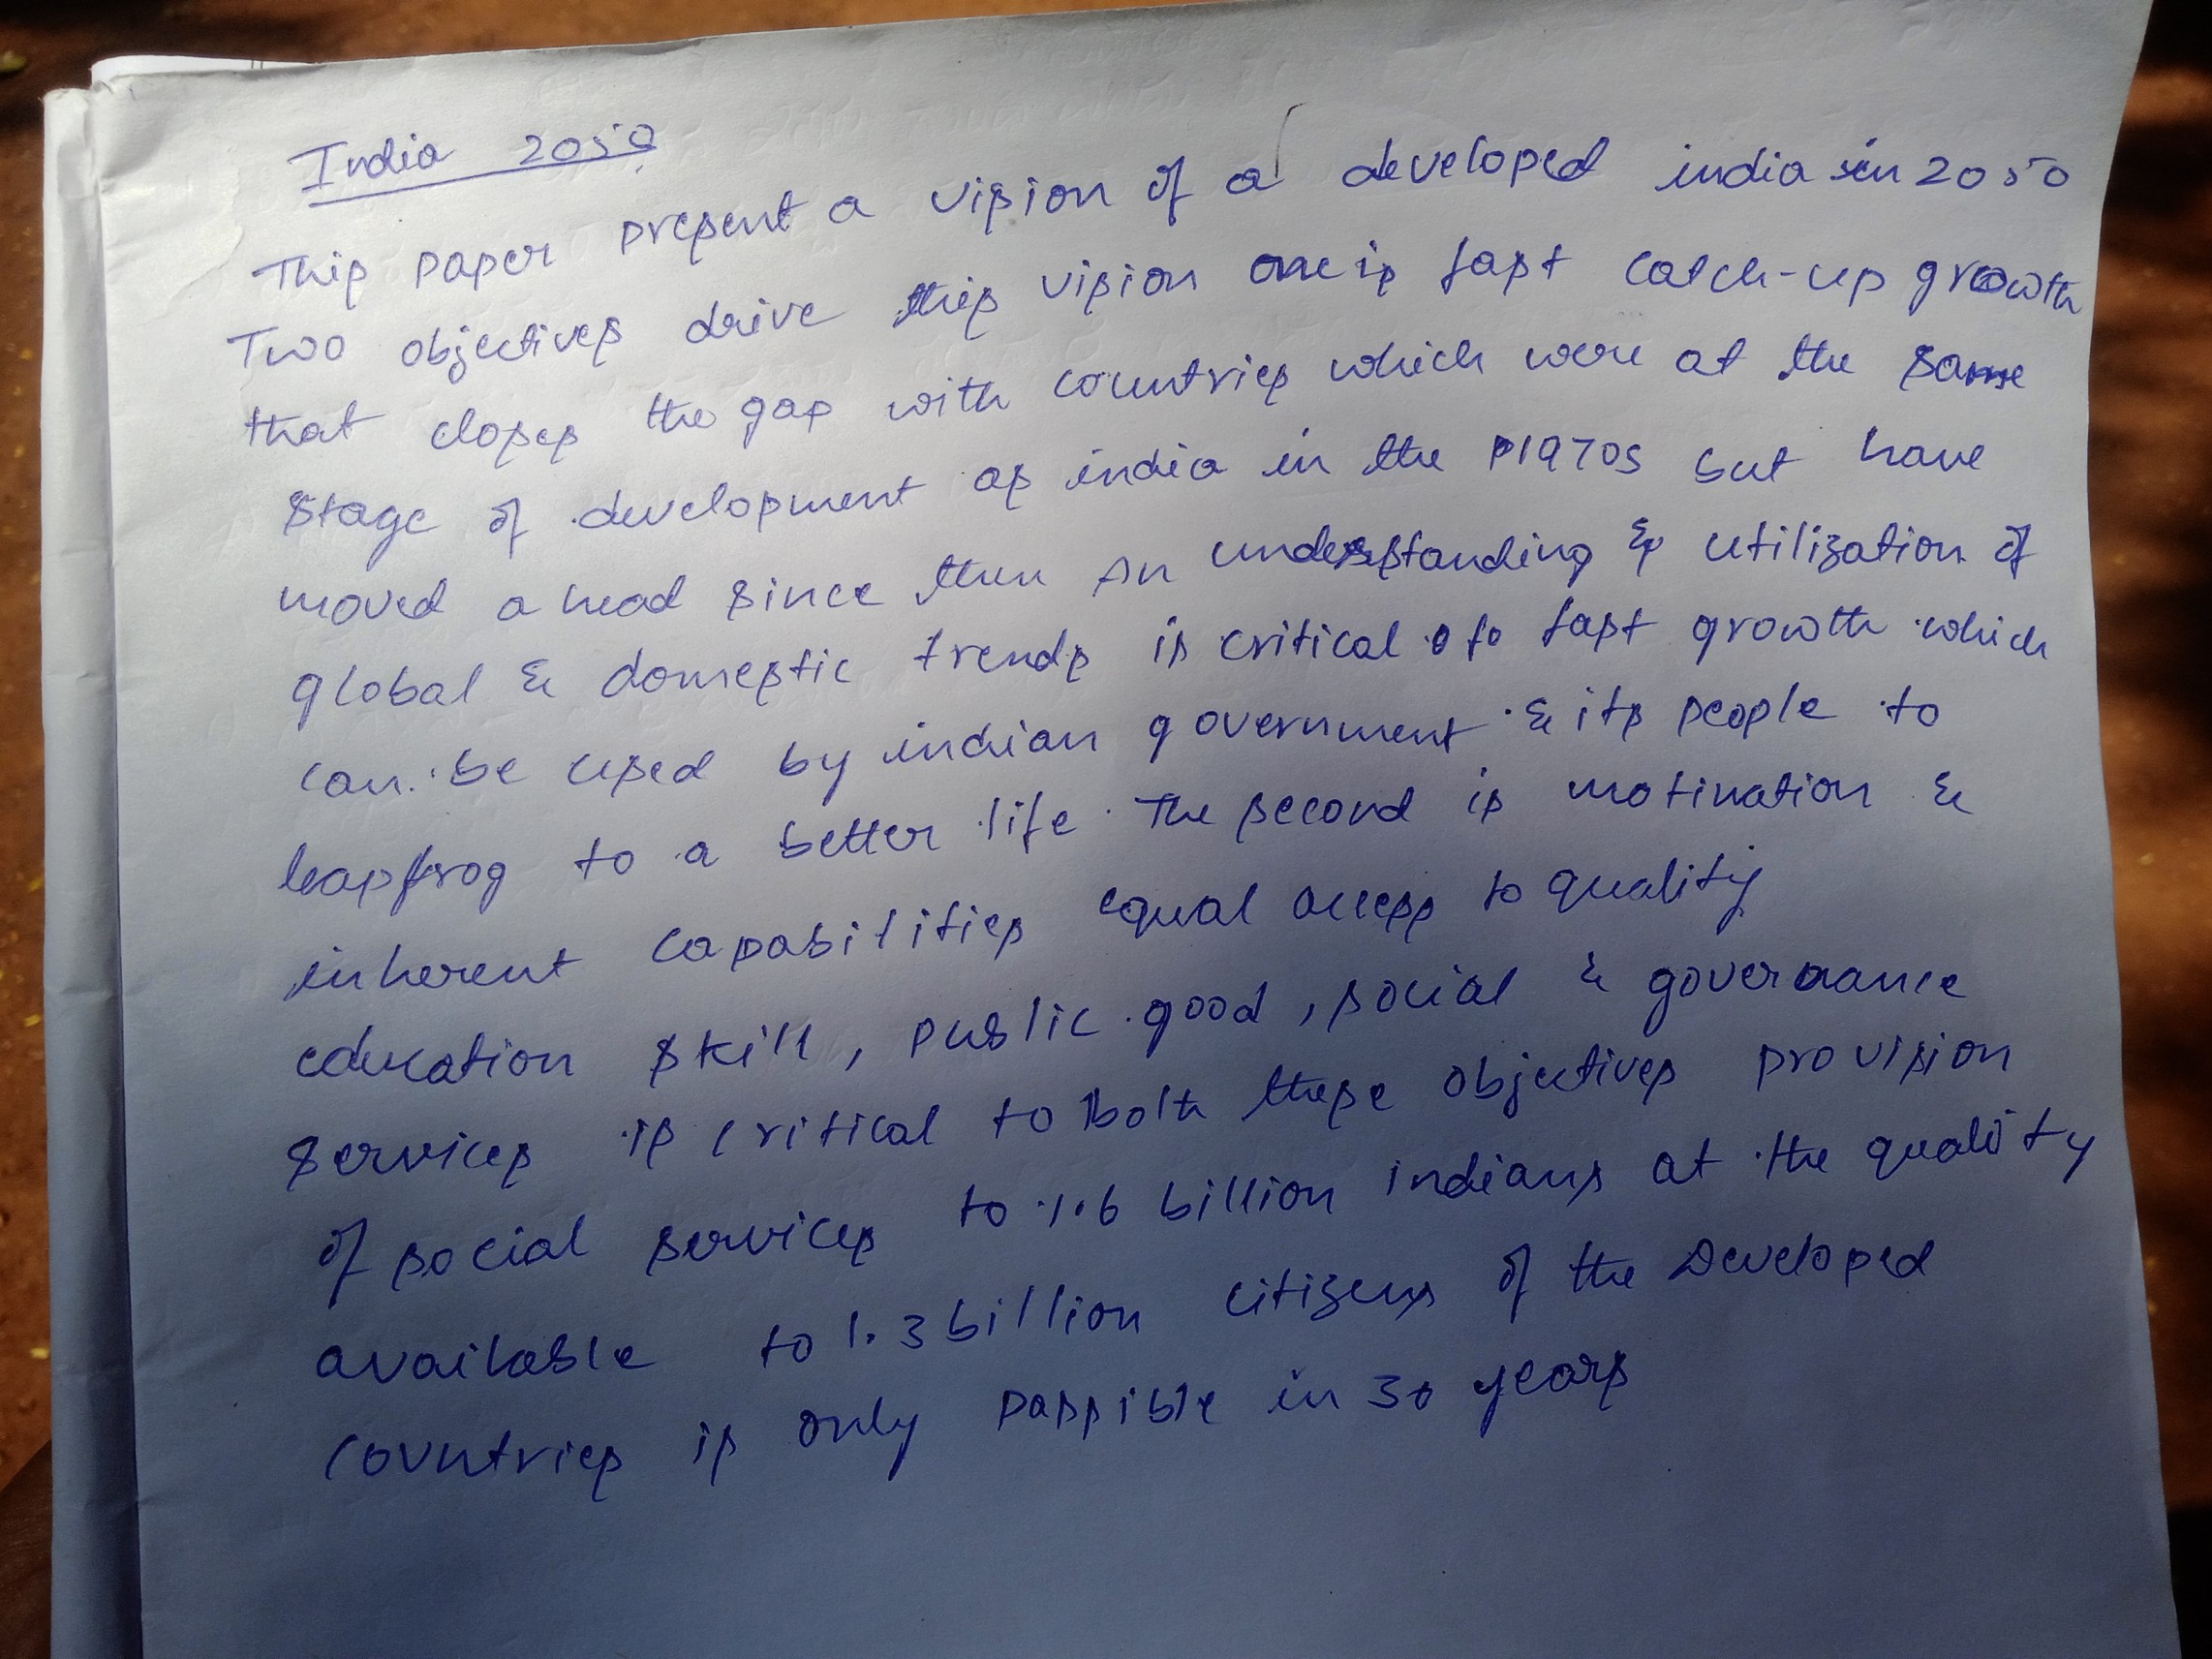 India 2050
This paper present a vision of a developed india in 2050
Two objectives drive this vision one is fast catch-up growth
that closes the gap with countries which were at the same
stage of development as india in the 1970s but have
moved a head since then An understanding & utilization of
global & domestic trends is critical to fast growth which
can be used by indian government & its people to
leapfrog to a better life. The second is motination &
inherent capabilities equal access to quality
education skill, public good, social & governance
services is critical to Both these objectives provision
of social services to 1.6 billion indians at the quality
available to 1.3 billion citizens of the Developed
countries is only passible in 30 years